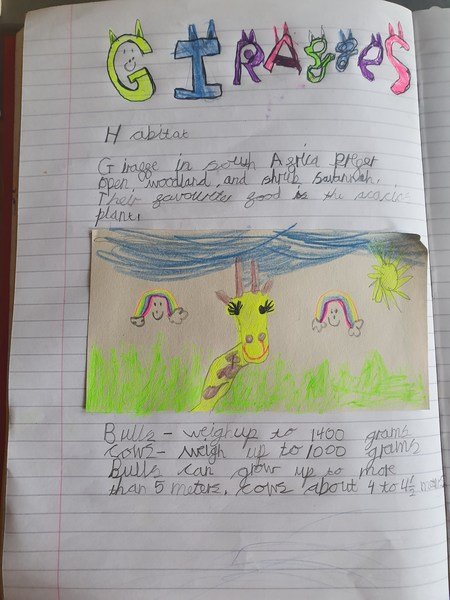 GIRAffES
Habitat
Giraffe in south Africa prefer
open, woodland, and shrub savannah.
Their favourite food is the acacia
plant.
Bulls - weigh up to 1400 grams
cows - weigh up to 1000 grams
Bulls can grow up to more
than 5 meters, cows about 4 to 4½